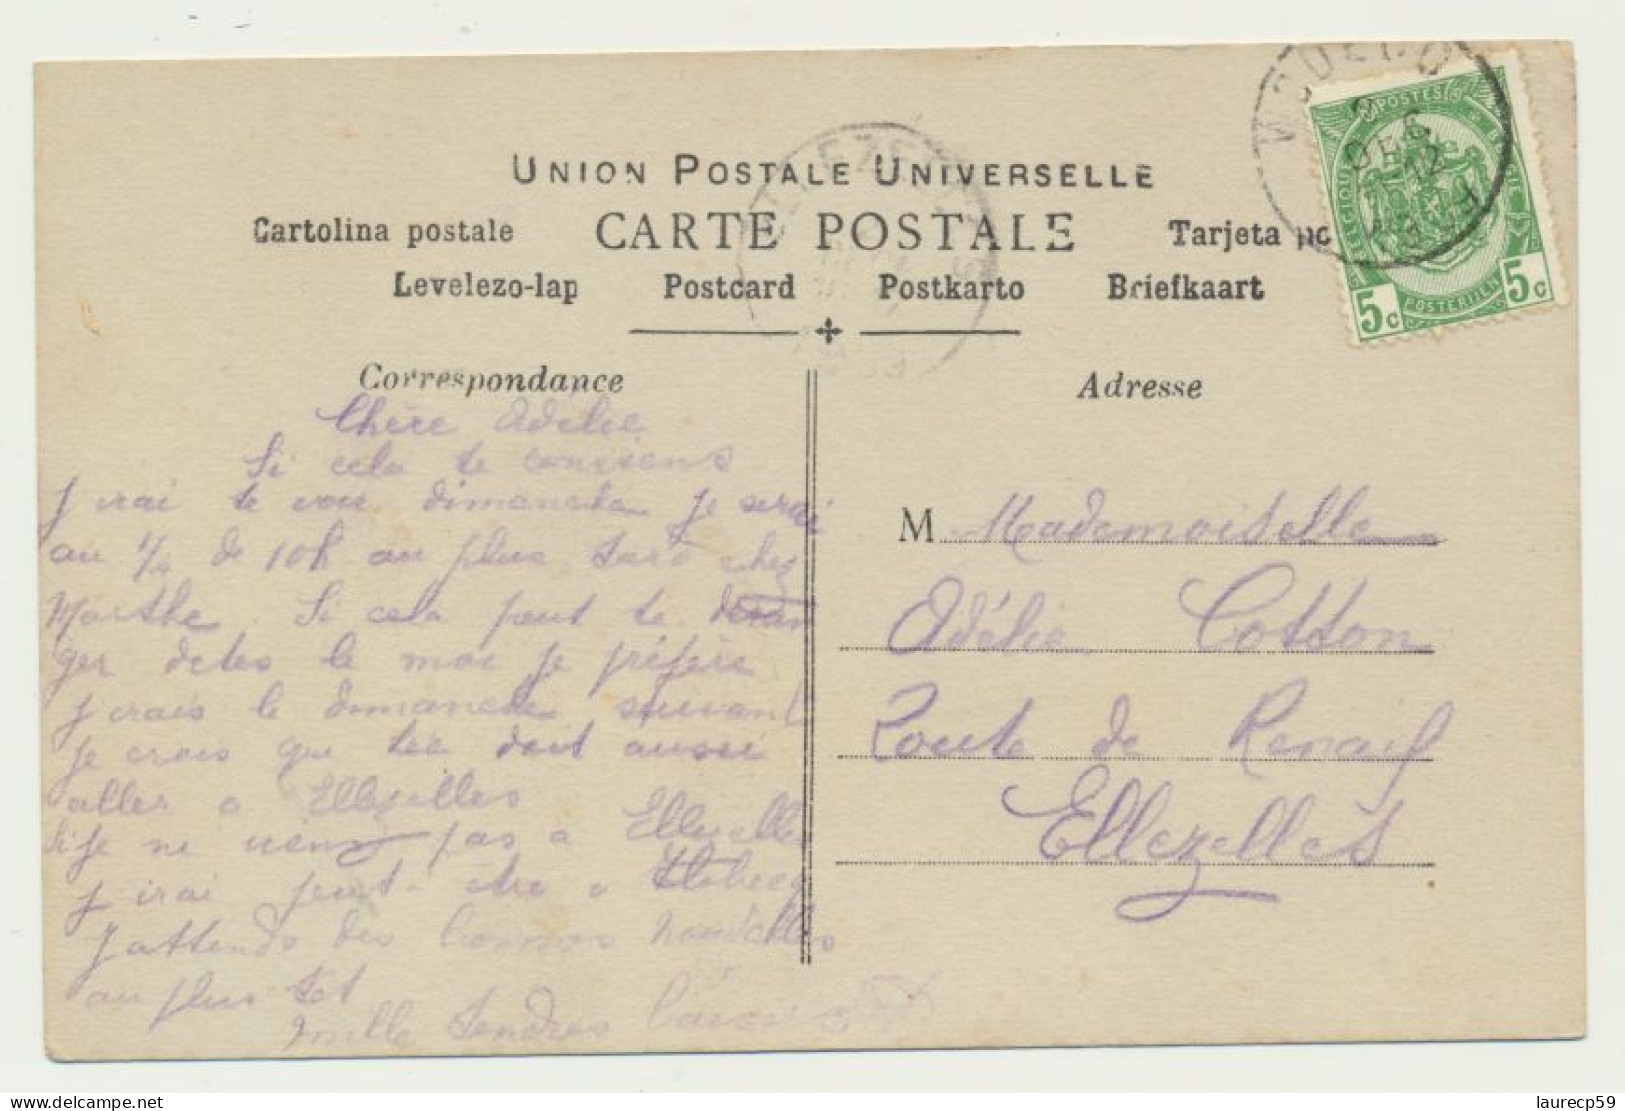 UNION POSTALE UNIVERSELLE
Cartolina postale CARTE POSTALE Tarjeta po
Levelezo-lap Postcard Postkarto Briefkaart
POSTES
BELGIQUE
BELGIË
POSTERIJEN
5c 5c
DEC
12
Correspondance
Chère Adélie
Si cela te conviens
j irai te voir dimanche je serai
au 1/4 de 10h au plus tard chez
Marthe. Si cela peut te déran
ger dites le moi je préfère
j irais le dimanche suivant
je crois que doit aussi
aller a Ellezelles
Si je ne viens pas a Ellezelles
j irai peut-être a
J attends des bonnes nouvelles
au plus tot
mille tendres
Adresse
M Mademoiselle
Adélie Cotton
Route de Renaix
Ellezelles
laurecp59